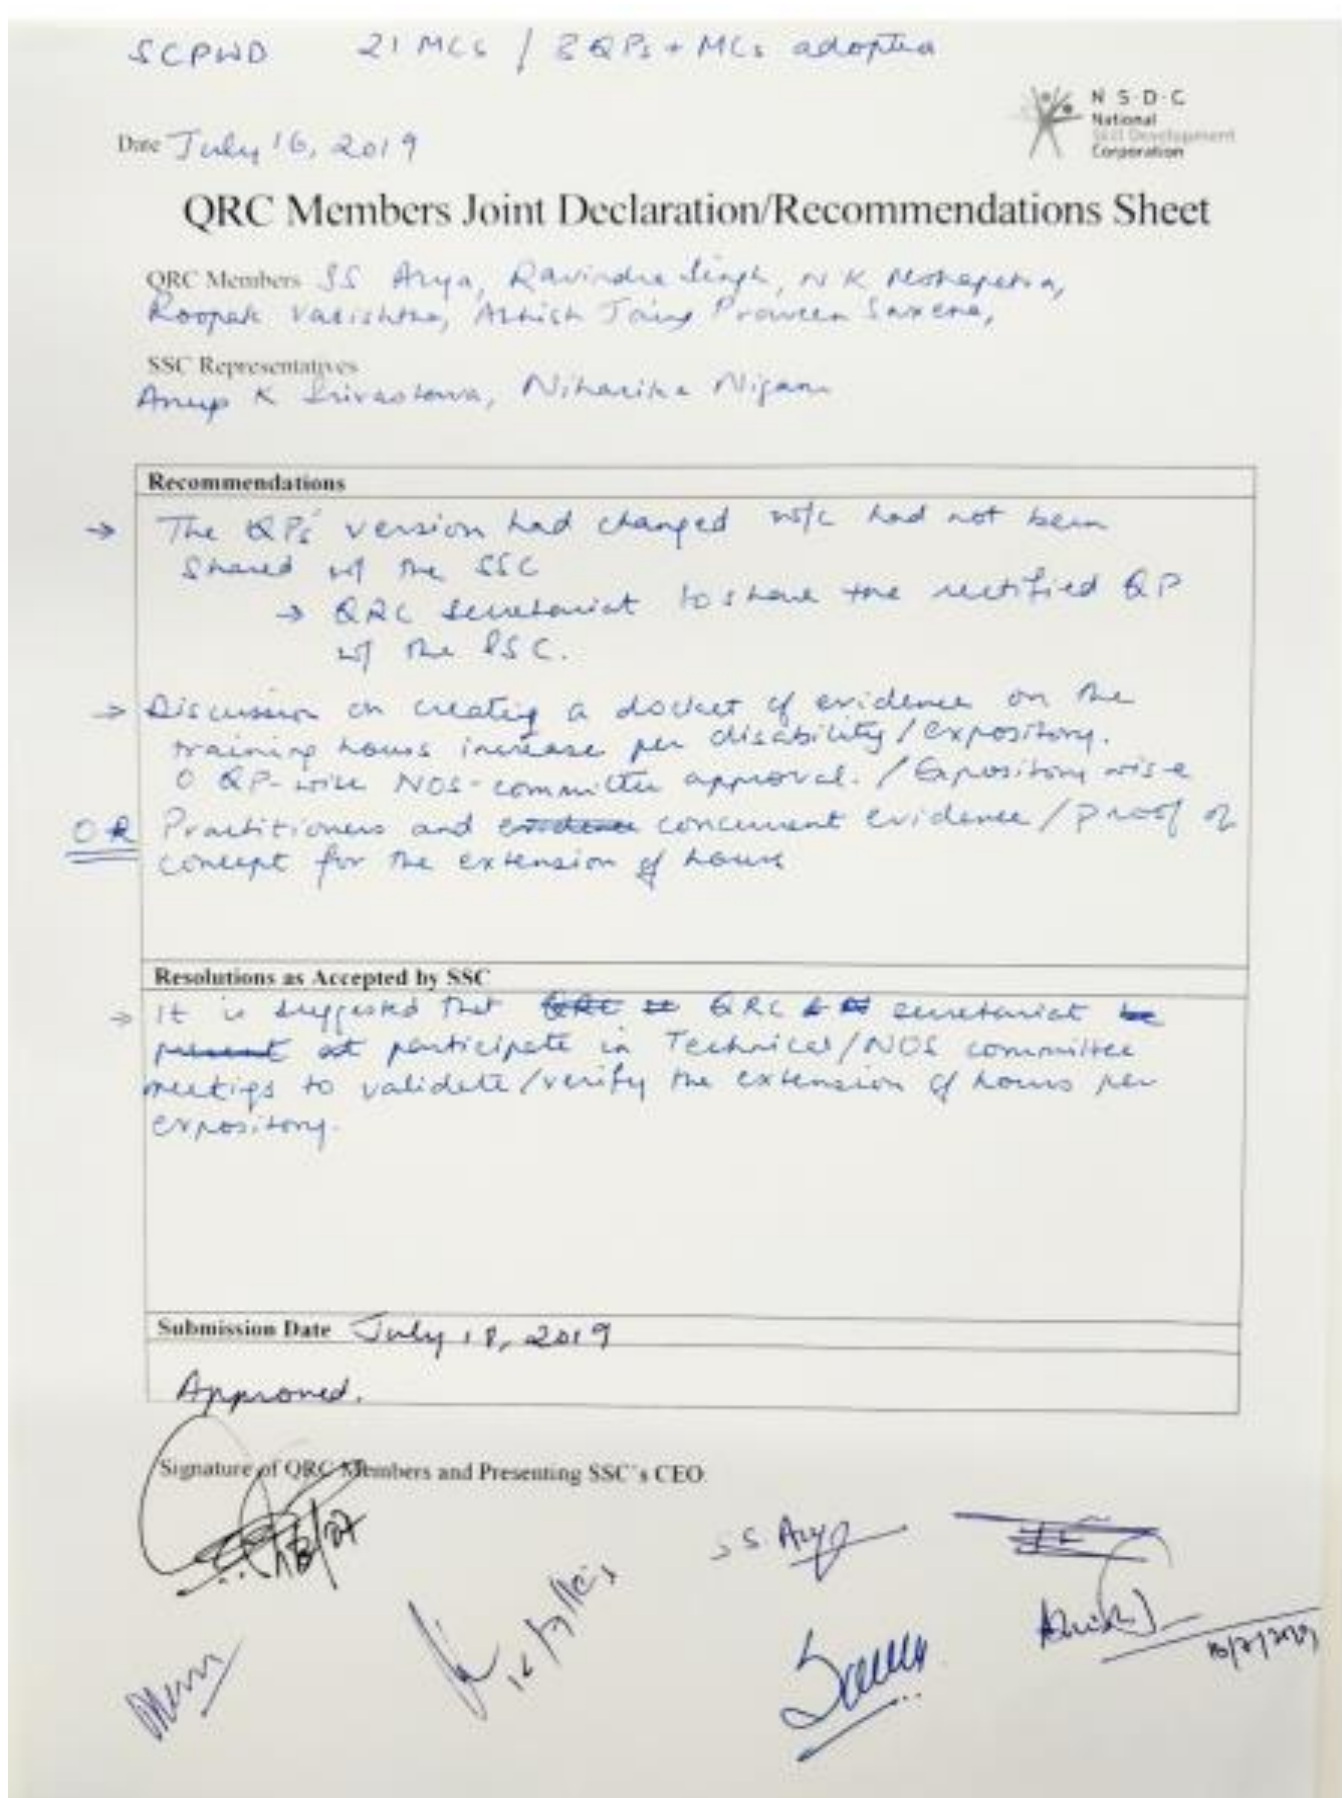 SCPWD 21 MCs / 8 QPs + MCs adopted
N S D C
National
Skill Development
Corporation
Date July 16, 2019
QRC Members Joint Declaration/Recommendations Sheet
QRC Members SS Arya, Ravindra Singh, N K Mohapatra,
Roopak Vasishtha, Ashish Jain, Praveen Saxena,
SSC Representatives
Anup K Srivastava, Niharika Nigam
Recommendations
→ The QPs' version had changed w/c had not been
shared w/ the SSC
→ QRC secretariat to share the rectified QP
w/ the SSC.
→ Discussion on creating a docket of evidence on the
training hours increase per disability/expository.
o QP-wise NOS-committee approval. / Expository wise
OR Practitioners and evidence concurrent evidence/proof of
concept for the extension of hours
Resolutions as Accepted by SSC
→ It is suggested that QRC QRC secretariat be
present at participate in Technical/NOS committee
meetigs to validate/verify the extension of hours per
expository.
Submission Date July 18, 2019
Approved.
Signature of QRC Members and Presenting SSC's CEO:
S S. Arya